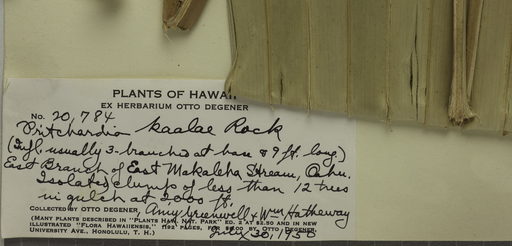 PLANTS OF HAWAII
EX HERBARIUM OTTO DEGENER
No. 20,784
Pritchardia kaalae Rock
(Infl. usually 3-branched at base & 9 ft. long.)
East Branch of East Makaleha Stream, Oahu.
Isolated clump of less than 12 trees
in gulch at 2000 ft.
COLLECTED BY OTTO DEGENER, Amy Greenwell & Wm Hatheway
(MANY PLANTS DESCRIBED IN "PLANTS HAW. NAT. PARK" ED. 2 AT $2.50 AND IN NEW
ILLUSTRATED "FLORA HAWAIIENSIS," 1192 PAGES, FOR BY OTTO DEGENER,
UNIVERSITY AVE., HONOLULU, T. H.) July 30, 1950